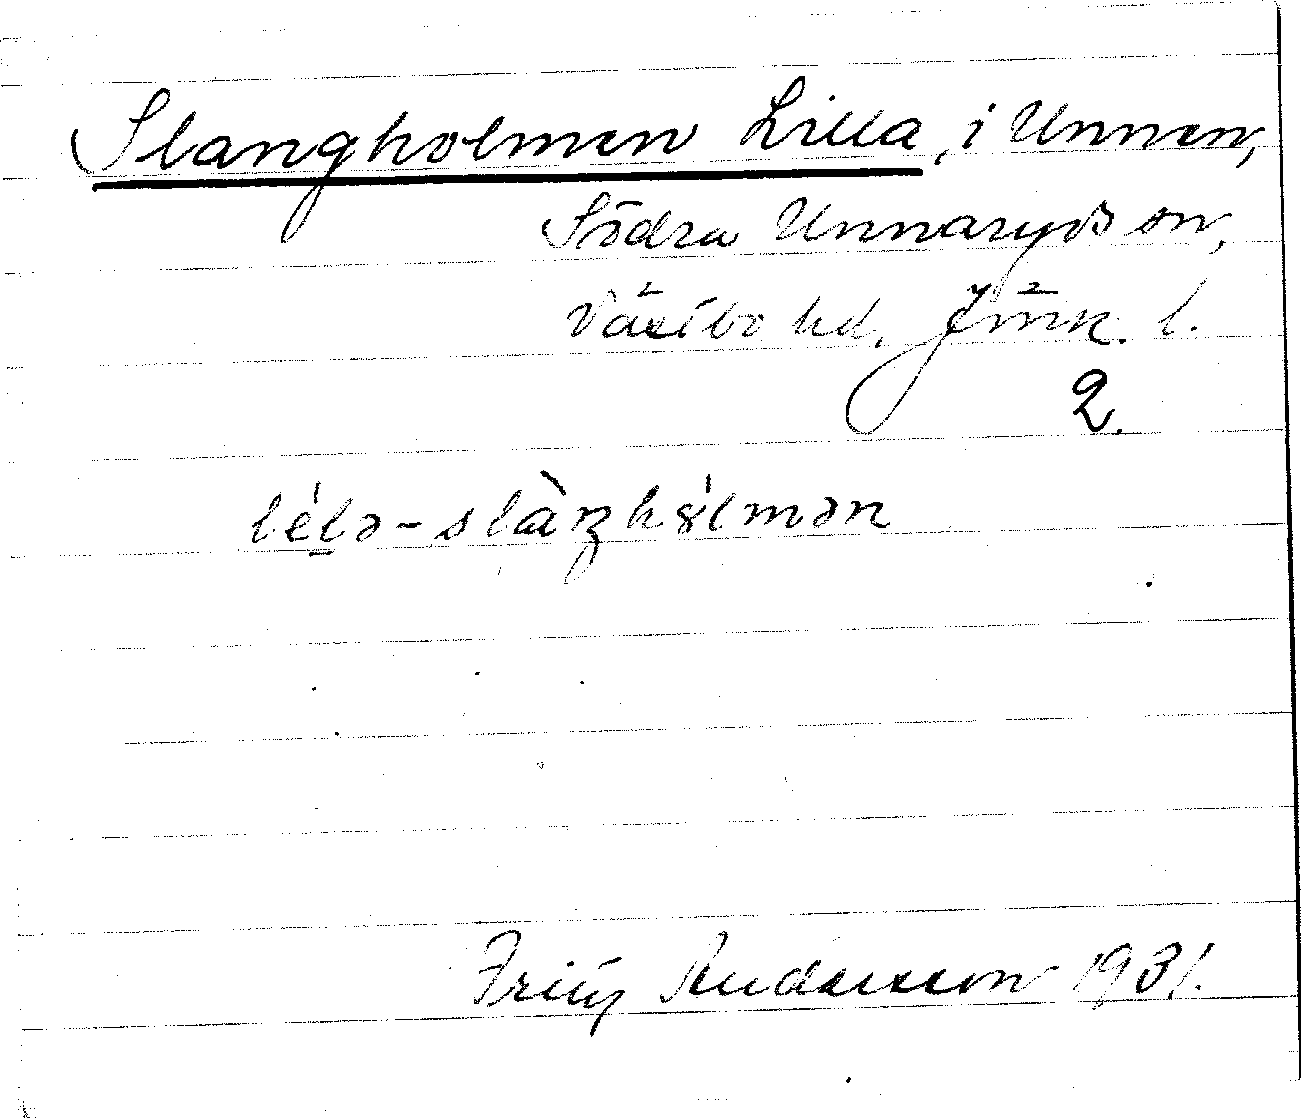 Slangholmen Lilla, i Unnen,
Södra Unnaryds sn,
Västbo hd, Jönk. l.
2.
lélə-slàŋhólmən
Fritz Andersson 1931.